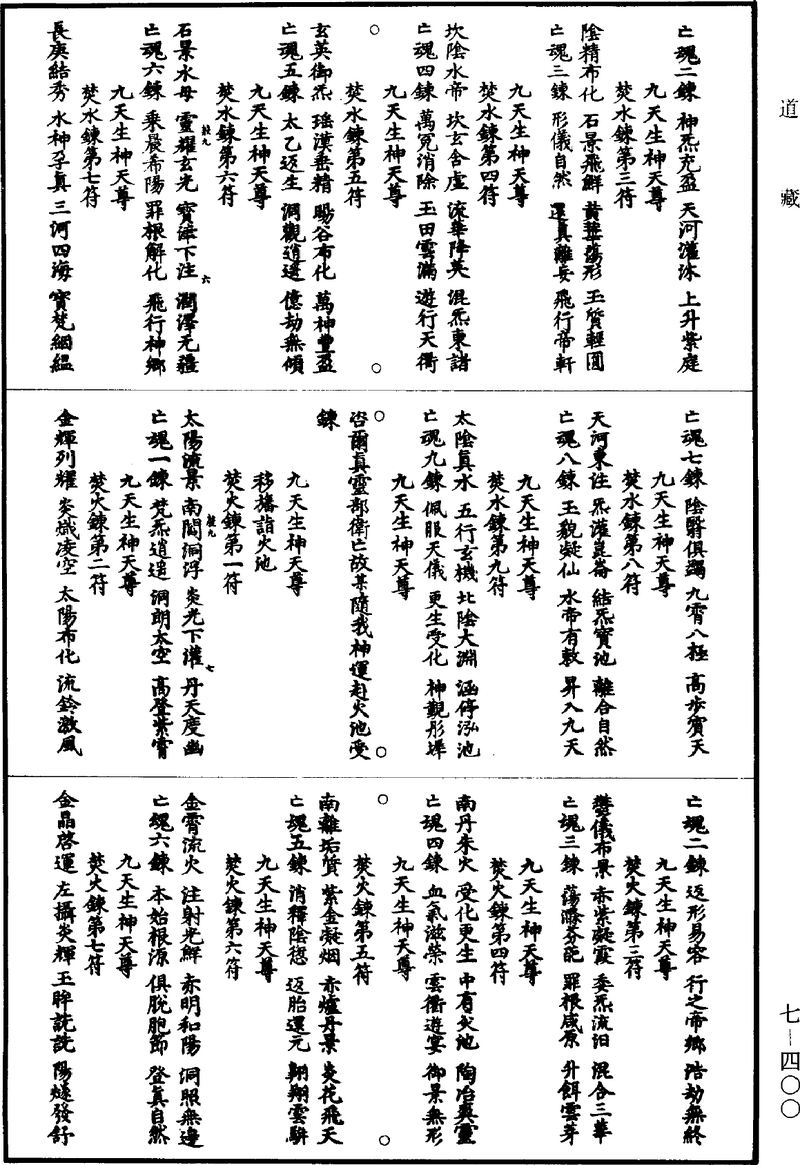 道藏
亡魂二鍊　神炁充盈　天河灌沐　上升紫庭
九天生神天尊
焚水鍊第三符
陰精布化　石景飛鮮　黃華蕩形　玉質輕圓
亡魂三鍊　形儀自然　還真離妄　飛行帝軒
九天生神天尊
焚水鍊第四符
坎陰水帝　坎玄含虛　流華降英　混炁東諸
亡魂四鍊　萬冤消除　玉田雲滿　遊行天衢
九天生神天尊
焚水鍊第五符
○　○
玄英御炁　瑶漢垂精　暘谷布化　萬神豐盈
亡魂五鍊　太乙返生　洞觀逍遥　億劫無傾
九天生神天尊
焚水鍊第六符
石景水母　靈耀玄光　寶津下注　潤澤无疆
亡魂六鍊　乘晨希陽　罪根解化　飛行神鄉
九天生神天尊
焚水鍊第七符
長庚結秀　水神孕真　三河四海　寶梵絪縕
亡魂七鍊　陰翳俱蠲　九霄八極　高步賓天
九天生神天尊
焚水鍊第八符
天河東注　炁灌崑崙　結炁寶池　離合自然
亡魂八鍊　玉貌凝仙　水帝有敕　昇入九天
九天生神天尊
焚水鍊第九符
太陰真水　五行玄機　北陰大淵　涵停泓池
亡魂九鍊　佩服天儀　更生受化　神觀彤墀
九天生神天尊
○　○
咨爾真靈部衛亡故某隨我神運赴火池受
鍊
九天生神天尊
移旛詣火池
焚火鍊第一符
太陽流景　南閻洞浮　炎光下灌　丹天度幽
亡魂一鍊　梵炁逍遥　洞朗太空　高登紫霄
九天生神天尊
焚火鍊第二符
金輝列耀　炎熾凌空　太陽布化　流鈴激風
亡魂二鍊　返形易容　行之帝鄉　浩劫無終
九天生神天尊
焚火鍊第三符
鬱儀布景　赤紫凝霞　委炁流汨　混合三華
亡魂三鍊　蕩滌芬葩　罪根咸原　升餌雲芽
九天生神天尊
焚火鍊第四符
南丹朱火　受化更生　中有火池　陶冶真靈
亡魂四鍊　血氣滋榮　雲衢遊宴　御景無形
九天生神天尊
焚火鍊第五符
○　○
南離垢質　紫金凝烟　赤爐丹景　炎花飛天
亡魂五鍊　消釋陰愆　返胎還元　翱翔雲駢
九天生神天尊
焚火鍊第六符
金霄流火　注射光鮮　赤明和陽　洞照無邊
亡魂六鍊　本始根源　俱脫胞節　登真自然
九天生神天尊
焚火鍊第七符
金晶啓運　左攝炎輝　玉眸詵詵　陽燧發舒
七—四〇〇